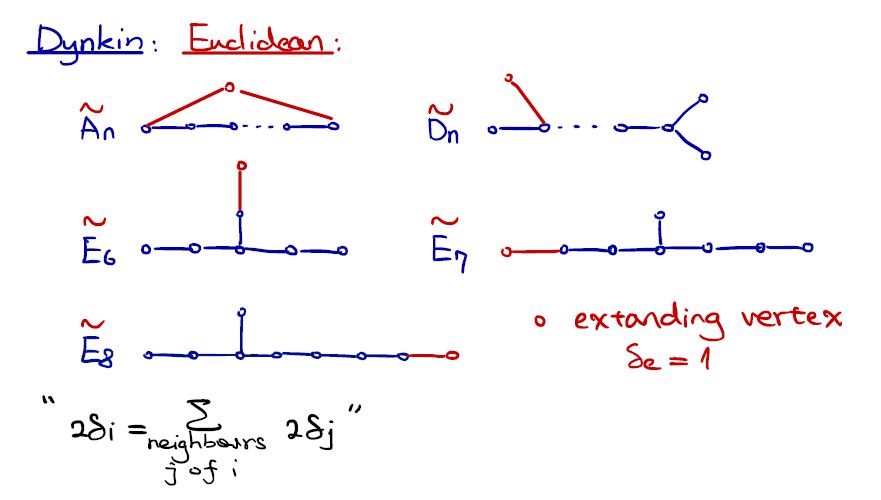 Dynkin: Euclidean:
Ãn
D̃n
Ẽ6
Ẽ7
Ẽ8
o extanding vertex
δe = 1
" 2δi = ∑ 2δj "
neighbours
j of i